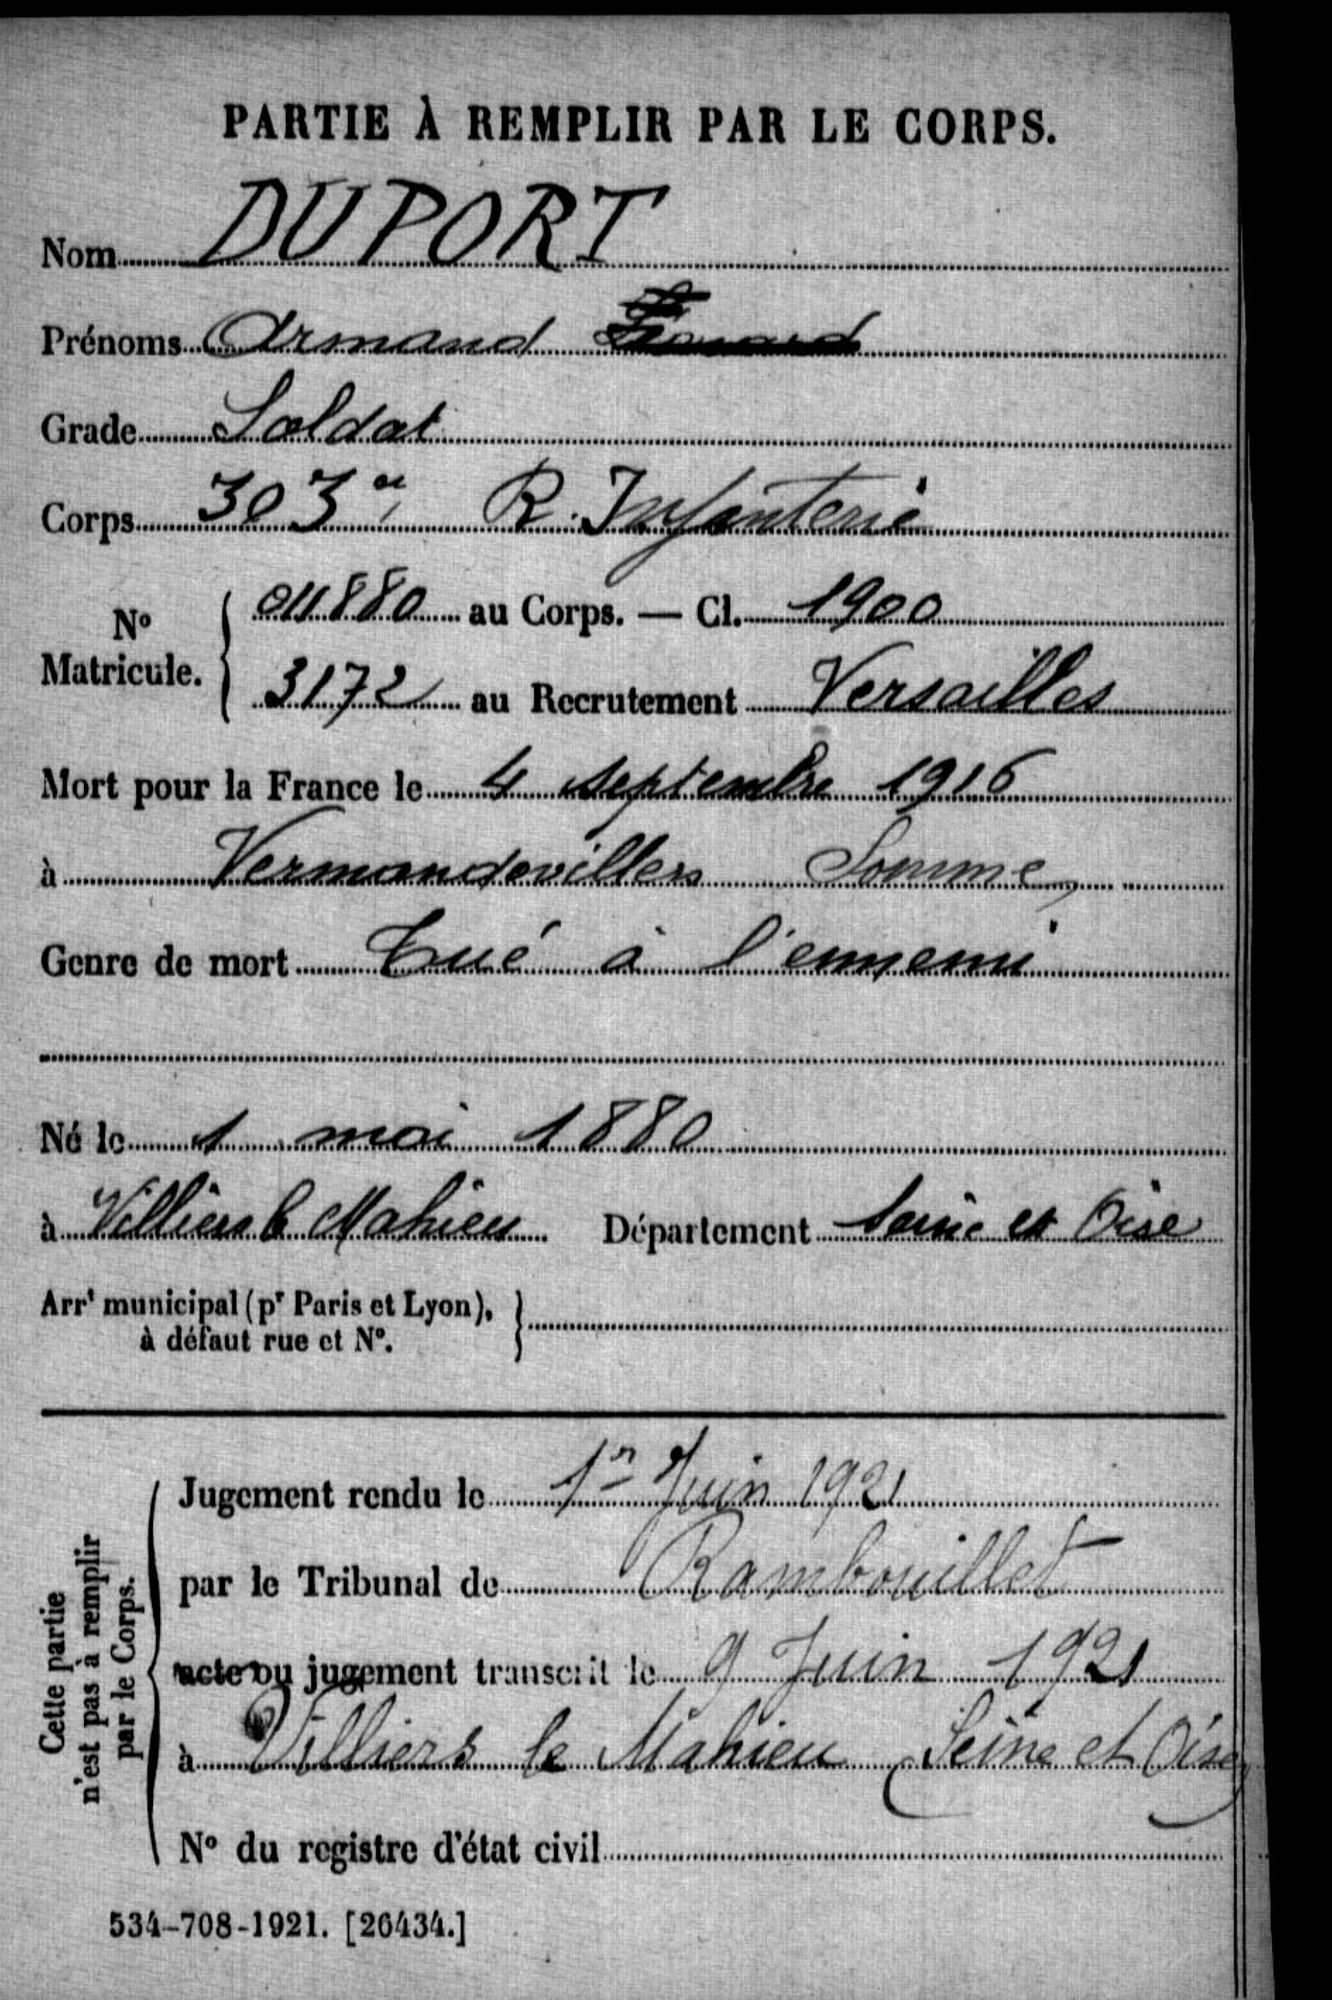 PARTIE À REMPLIR PAR LE CORPS.
Nom DUPORT
Prénoms Armand
Grade Soldat
Corps 303e R. Infanterie
No Matricule. 011880 au Corps. — Cl. 1900
3172 au Recrutement Versailles
Mort pour la France le 4 septembre 1916
à Vermandovillers Somme
Genre de mort Tué à l'ennemi
Né le 1 mai 1880
à Villiers le Mahieu Département Seine et Oise
Arrt municipal (pr Paris et Lyon),
à défaut rue et No.
Cette partie
n'est pas à remplir
par le Corps.
Jugement rendu le 1er Juin 1921
par le Tribunal de Rambouillet
acte ou jugement transcrit le 9 Juin 1921
à Villiers le Mahieu (Seine et Oise)
No du registre d'état civil
534-708-1921. [26434.]